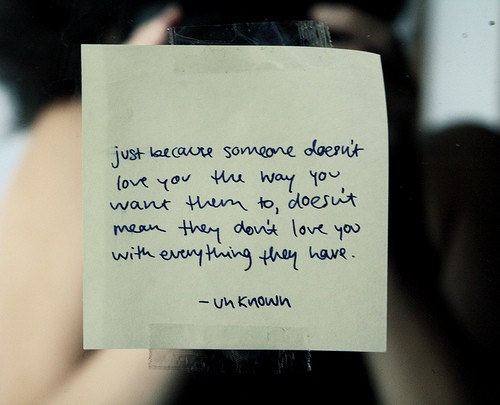 just because someone doesn't
love you the way you
want them to, doesn't
mean they don't love you
with everything they have.
- unknown